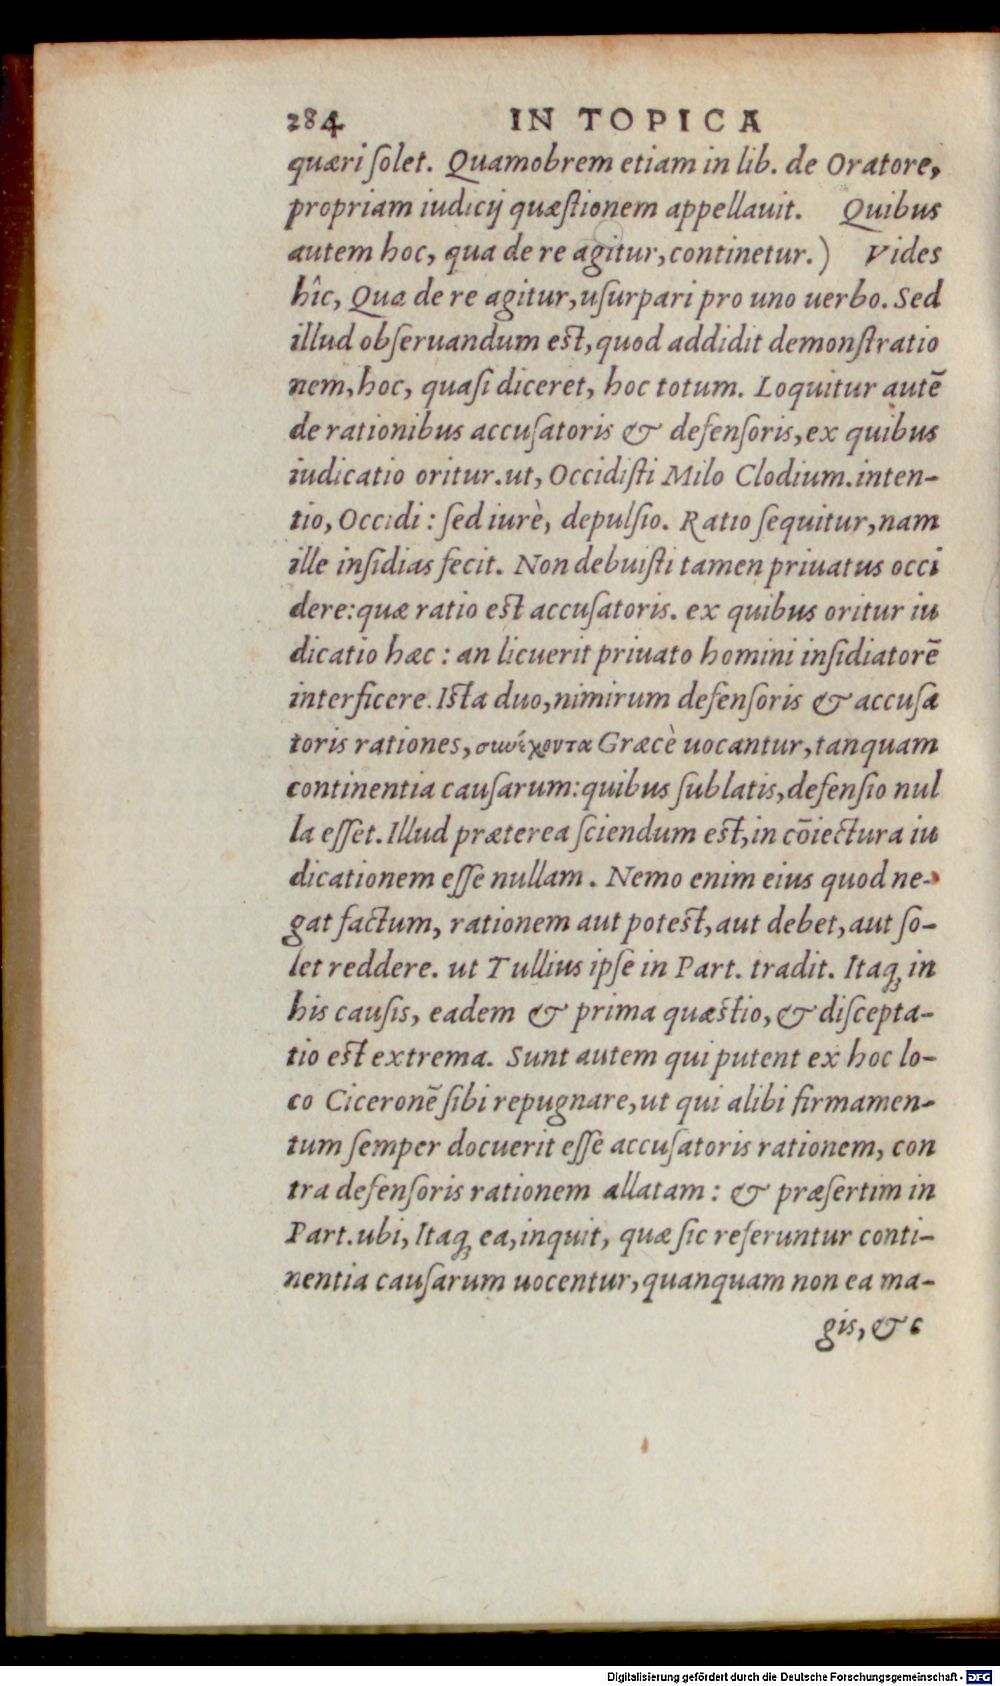 284 IN TOPICA
quæri ſolet. Quamobrem etiam in lib. de Oratore,
propriam iudicij quæſtionem appellauit. Quibus
autem hoc, qua de re agitur, continetur.) Vides
hîc, Qua de re agitur, uſurpari pro uno uerbo. Sed
illud obſeruandum eſt, quod addidit demonſtratio
nem, hoc, quaſi diceret, hoc totum. Loquitur autē
de rationibus accuſatoris & defenſoris, ex quibus
iudicatio oritur. ut, Occidiſti Milo Clodium. inten-
tio, Occidi : ſed iurè, depulſio. Ratio ſequitur, nam
ille inſidias fecit. Non debuiſti tamen priuatus occi
dere: quæ ratio eſt accuſatoris. ex quibus oritur iu
dicatio hæc : an licuerit priuato homini inſidiatorē
interficere. Iſta duo, nimirum defenſoris & accuſa
toris rationes, συνέχοντα Græcè uocantur, tanquam
continentia cauſarum: quibus ſublatis, defenſio nul
la eſſet. Illud præterea ſciendum eſt, in cōiectura iu
dicationem eſſe nullam. Nemo enim eius quod ne-
gat factum, rationem aut poteſt, aut debet, aut ſo-
let reddere. ut Tullius ipſe in Part. tradit. Itaq; in
his cauſis, eadem & prima quæſtio, & diſcepta-
tio eſt extrema. Sunt autem qui putent ex hoc lo-
co Ciceronē ſibi repugnare, ut qui alibi firmamen-
tum ſemper docuerit eſſe accuſatoris rationem, con
tra defenſoris rationem allatam : & præſertim in
Part. ubi, Itaq; ea, inquit, quæ ſic referuntur conti-
nentia cauſarum uocentur, quanquam non ea ma-
gis, & c
Digitalisierung gefördert durch die Deutsche Forschungsgemeinschaft - DFG